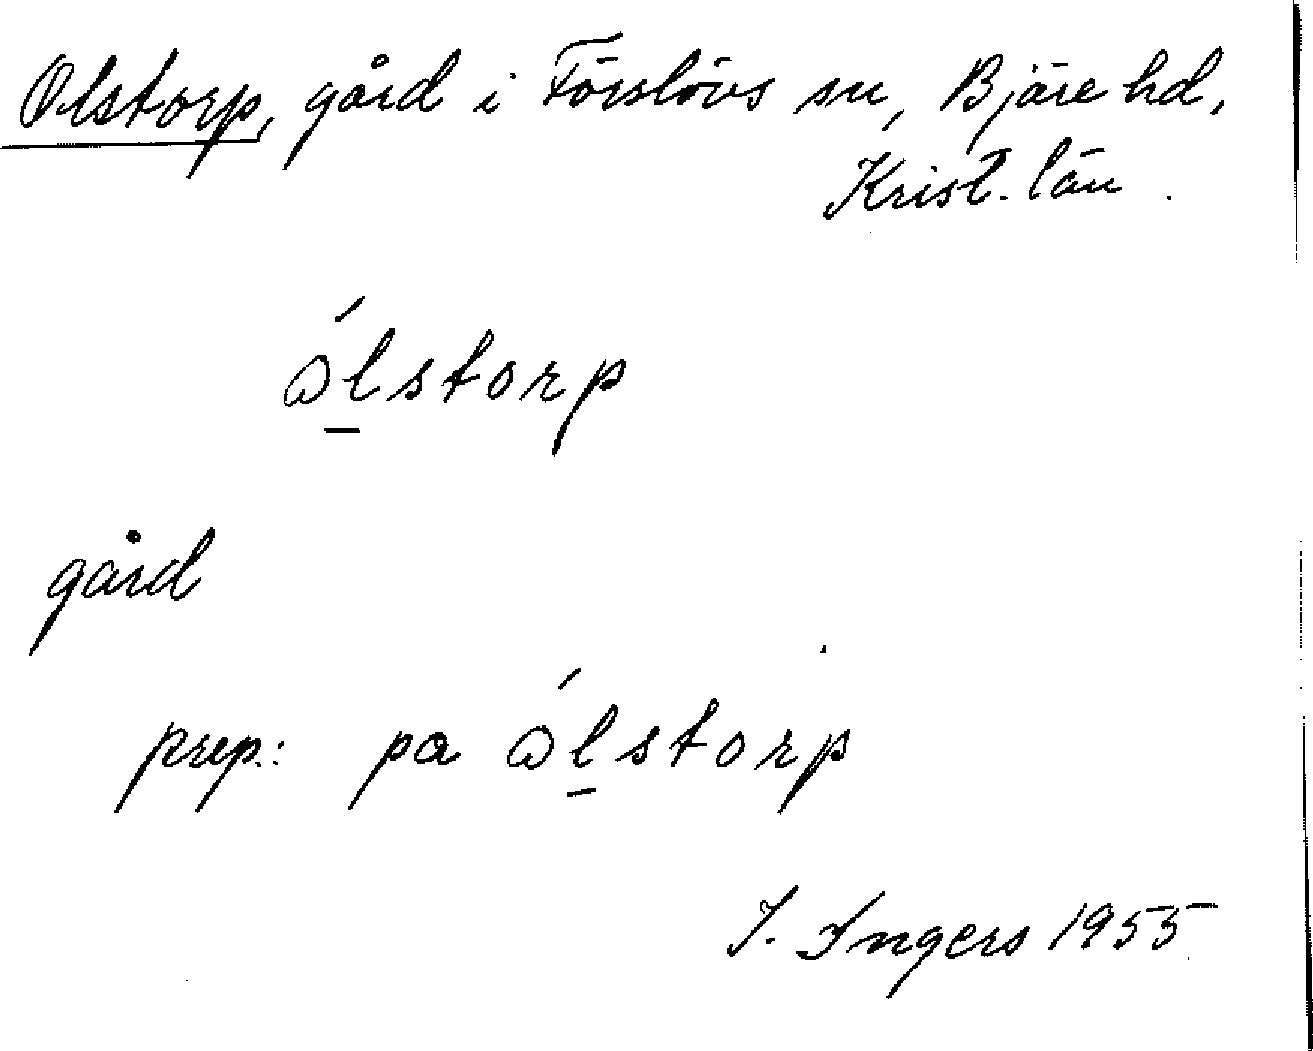 Olstorp, gård i Förslövs sn, Bjäre hd,
Krist. län.
ólstorp
gård
prep.: pa ólstorp
I. Ingers 1955